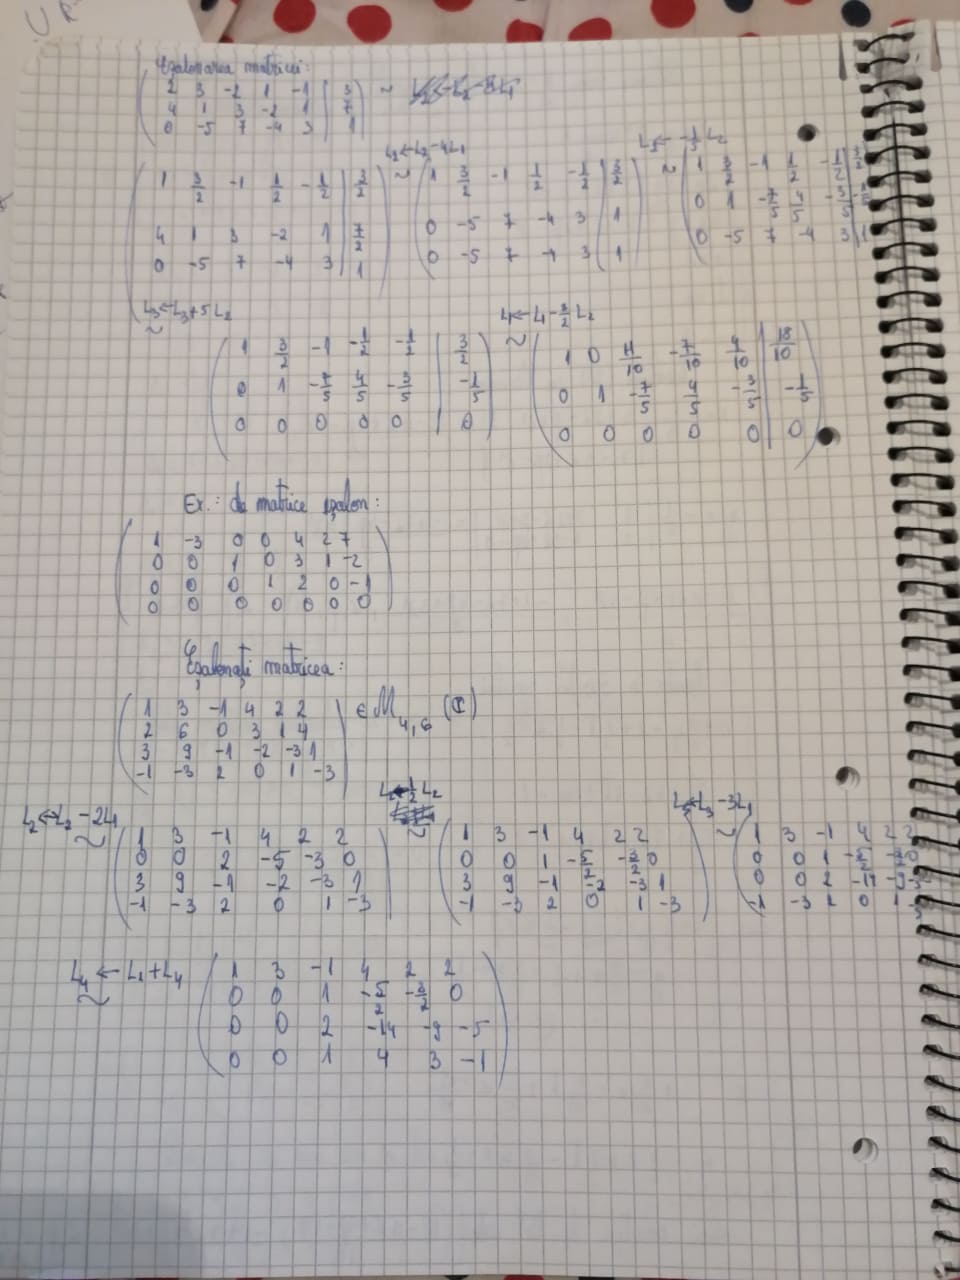 Eșalonarea matricei:
2 3 -2 1 -1 | 3
4 1 3 -2 1 | 7
0 -5 7 -4 3 | 1
~
L₂←L₂-4L₁
L₂←-1/5 L₂
1 3/2 -1 1/2 -1/2 | 3/2
4 1 3 -2 1 | 7/2
0 -5 7 -4 3 | 1
~
1 3/2 -1 1/2 -1/2 | 3/2
0 -5 7 -4 3 | 1
0 -5 7 -4 3 | 1
~
1 3/2 -1 1/2 -1/2 | 3/2
0 1 -7/5 4/5 -3/5
0 -5 7 -4 3 | 1
L₃←L₃+5L₂
~
1 3/2 -1 -1/2 -1/2 | 3/2
0 1 -7/5 4/5 -3/5 | -1/5
0 0 0 0 0 | 0
L₁←L₁-3/2 L₂
~
1 0 11/10 -7/10 4/10 | 18/10
0 1 -7/5 4/5 -3/5 | -1/5
0 0 0 0 0 | 0
Ex.: de matrice eșalon:
1 -3 0 0 4 2 7
0 0 1 0 3 1 -2
0 0 0 1 2 0 -1
0 0 0 0 0 0 0
Eșalonați matricea:
1 3 -1 4 2 2
2 6 0 3 1 4
3 9 -1 -2 -3 1
-1 -3 2 0 1 -3
∈ M₄,₆ (C)
L₂←L₂-2L₁
~
1 3 -1 4 2 2
0 0 2 -5 -3 0
3 9 -1 -2 -3 1
-1 -3 2 0 1 -3
L₂←1/2 L₂
~
1 3 -1 4 2 2
0 0 1 -5/2 -3/2 0
3 9 -1 -2 -3 1
-1 -3 2 0 1 -3
L₃←L₃-3L₁
~
1 3 -1 4 2 2
0 0 1 -5/2 -3/2 0
0 0 2 -14 -9 -5
-1 -3 2 0 1 -3
L₄←L₁+L₄
~
1 3 -1 4 2 2
0 0 1 -5/2 -3/2 0
0 0 2 -14 -9 -5
0 0 1 4 3 -1